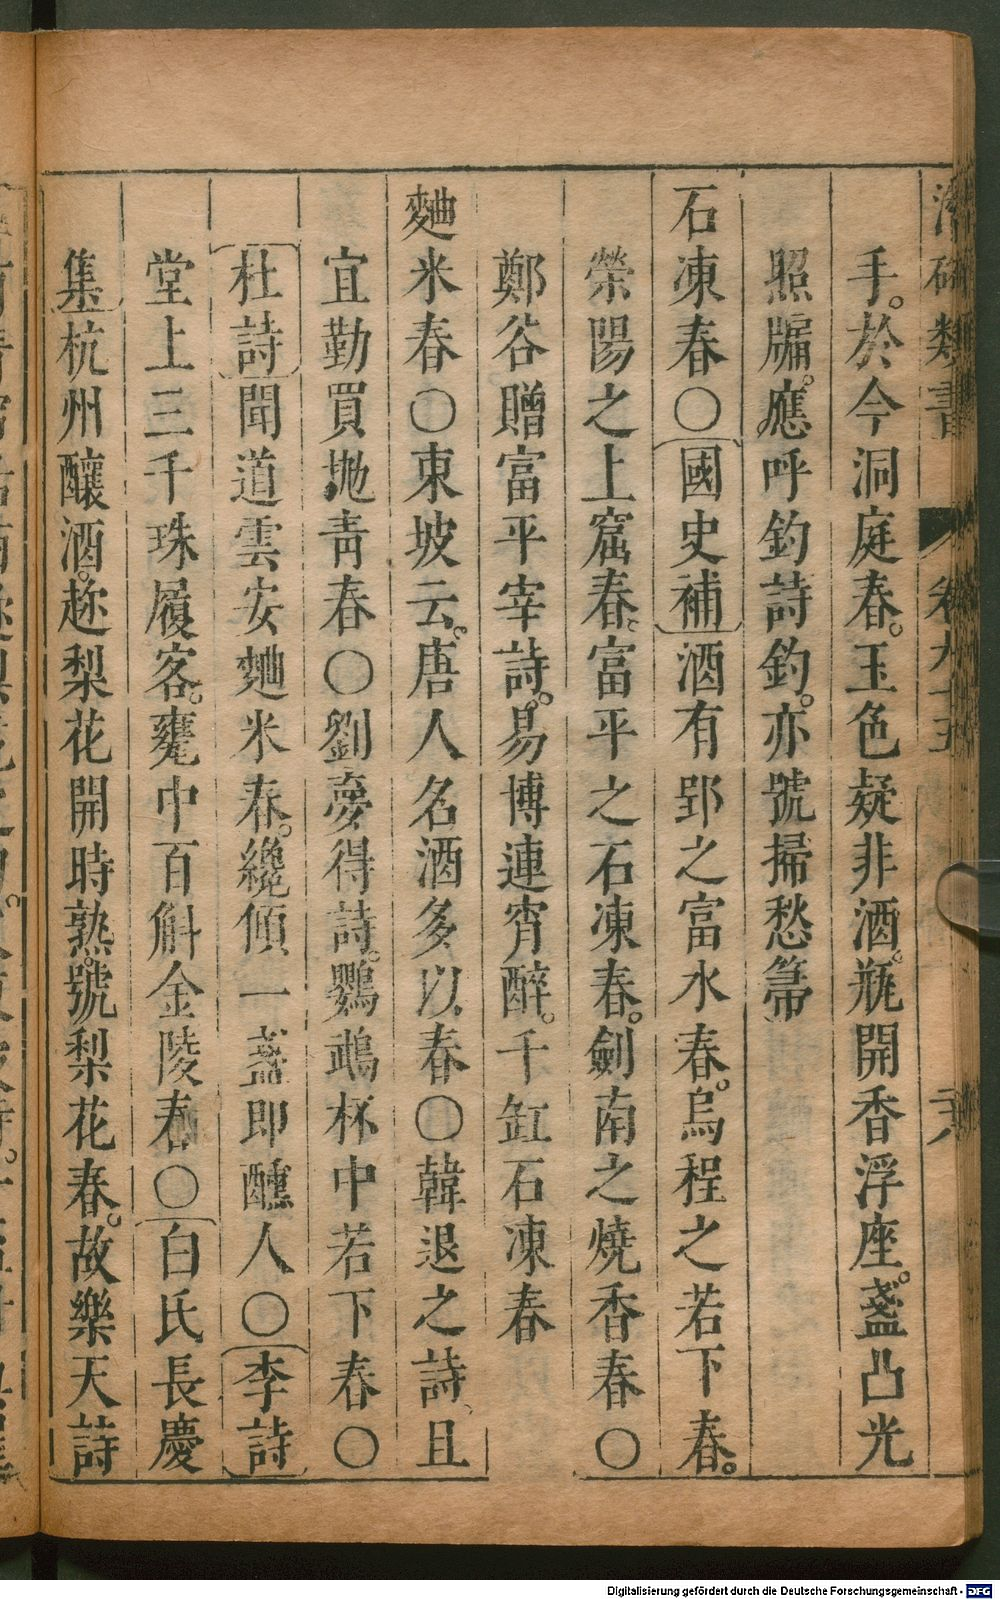 類書
卷九十五
手。於今洞庭春。玉色疑非酒。瓶開香浮座。盞凸光
照牖。應呼釣詩鈎。亦號掃愁箒
石凍春〇國史補酒有郢之富水春。烏程之若下春。
榮陽之上窟春。富平之石凍春。劍南之燒香春〇
鄭谷贈富平宰詩。易博連宵醉。千缸石凍春
麯米春〇東坡云。唐人名酒多以春〇韓退之詩、且
宜勤買抛青春〇劉夢得詩。鸚鵡杯中若下春〇
杜詩聞道雲安麯米春。纔傾一盞即醺人〇李詩
堂上三千珠履客。甕中百斛金陵春〇白氏長慶
集杭州釀酒。趂梨花開時熟。號梨花春。故樂天詩
Digitalisierung gefördert durch die Deutsche Forschungsgemeinschaft - DFG